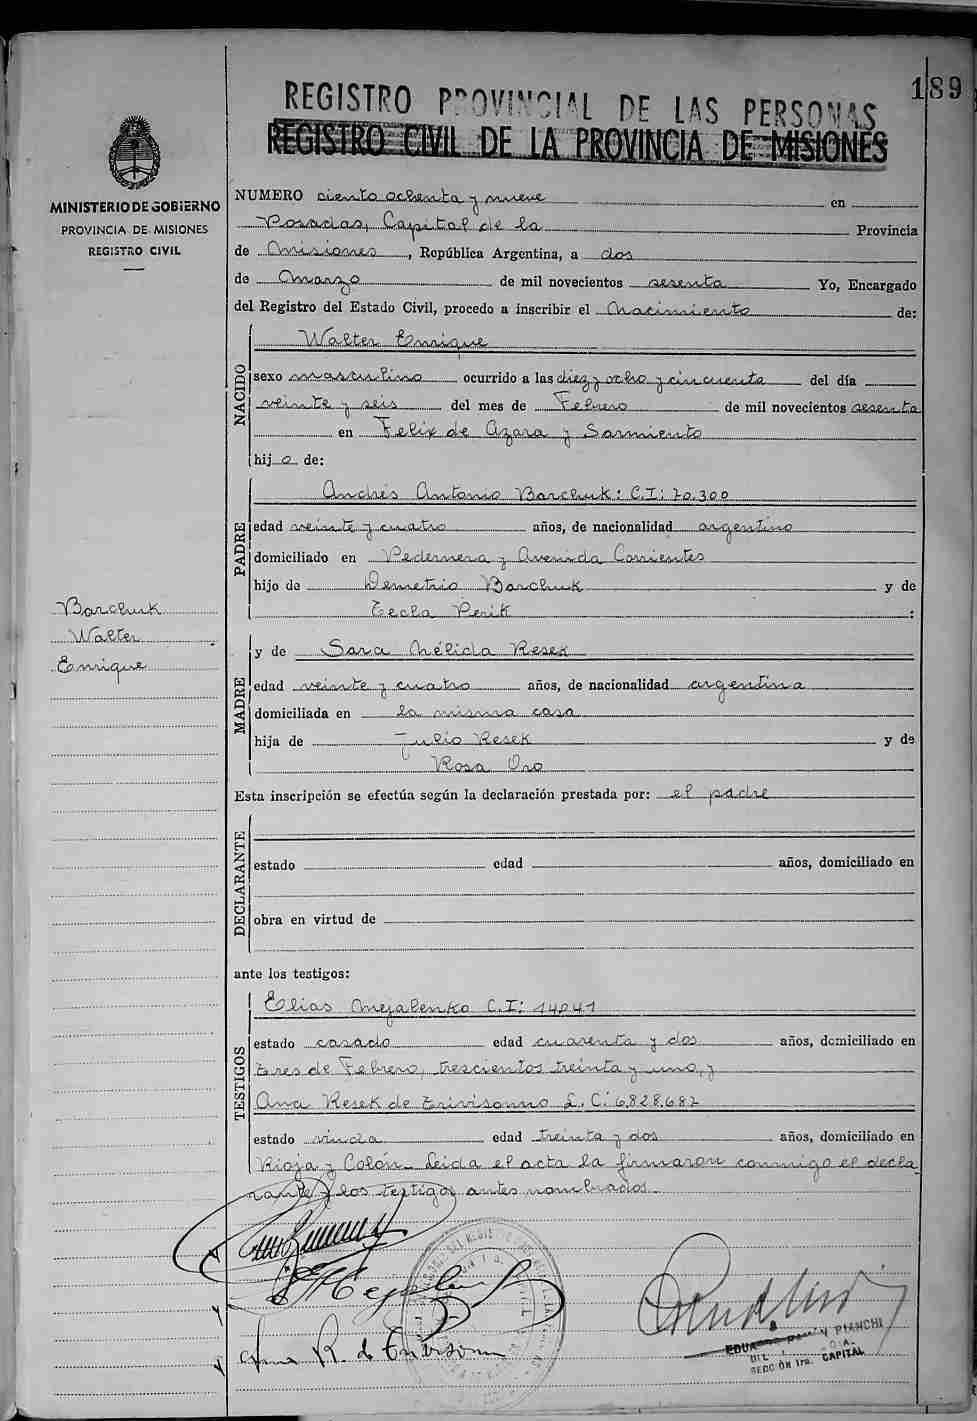 189
REGISTRO PROVINCIAL DE LAS PERSONAS
REGISTRO CIVIL DE LA PROVINCIA DE MISIONES
MINISTERIO DE GOBIERNO
PROVINCIA DE MISIONES
REGISTRO CIVIL
NUMERO ciento ochenta y nueve en
Posadas, Capital de la Provincia
de Misiones, República Argentina, a dos
de Marzo de mil novecientos sesenta Yo, Encargado
del Registro del Estado Civil, procedo a inscribir el Nacimiento de:
NACIDO
Walter Enrique
sexo masculino ocurrido a las diez y ocho y cincuenta del día
veinte y seis del mes de Febrero de mil novecientos sesenta
en Felix de Azara y Sarmiento
hijo de:
PADRE
Andrés Antonio Barchuk: C.I: 70.300
edad veinte y cuatro años, de nacionalidad argentino
domiciliado en Pedernera y Avenida Corrientes
hijo de Demetrio Barchuk y de
Tecla Perik :
Barchuk
Walter
Enrique
MADRE
y de Sara Nélida Resek
edad veinte y cuatro años, de nacionalidad argentina
domiciliada en la misma casa
hija de Julio Resek y de
Rosa Oro
Esta inscripción se efectúa según la declaración prestada por: el padre
DECLARANTE
estado edad años, domiciliado en
obra en virtud de
ante los testigos:
TESTIGOS
Elias Mejalenko C.I: 14041
estado casado edad cuarenta y dos años, domiciliado en
tres de Febrero, trescientos treinta y uno, y
Ana Resek de Trivisonno L.C: 6.828.687
estado viuda edad treinta y dos años, domiciliado en
Rioja y Colón. Leida el acta la firmaron conmigo el decla
rante y los testigos antes nombrados.
Ana R. de Trivisonno
PIANCHI
SECCIÓN 1ra. CAPITAL